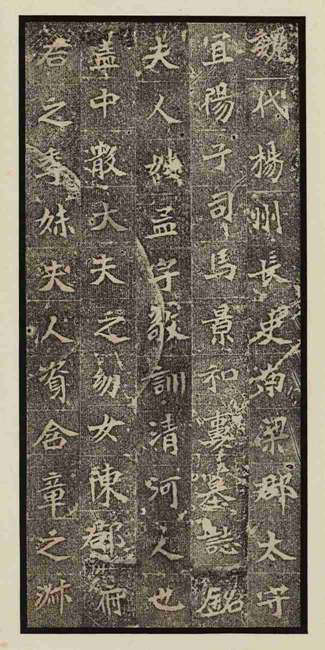 魏代揚州長史南梁郡太守
宜陽子司馬景和妻墓誌銘
夫人姓孟字敬訓清河人也
蓋中散大夫之幼女陳郡府
君之季妹夫人資含章之淑